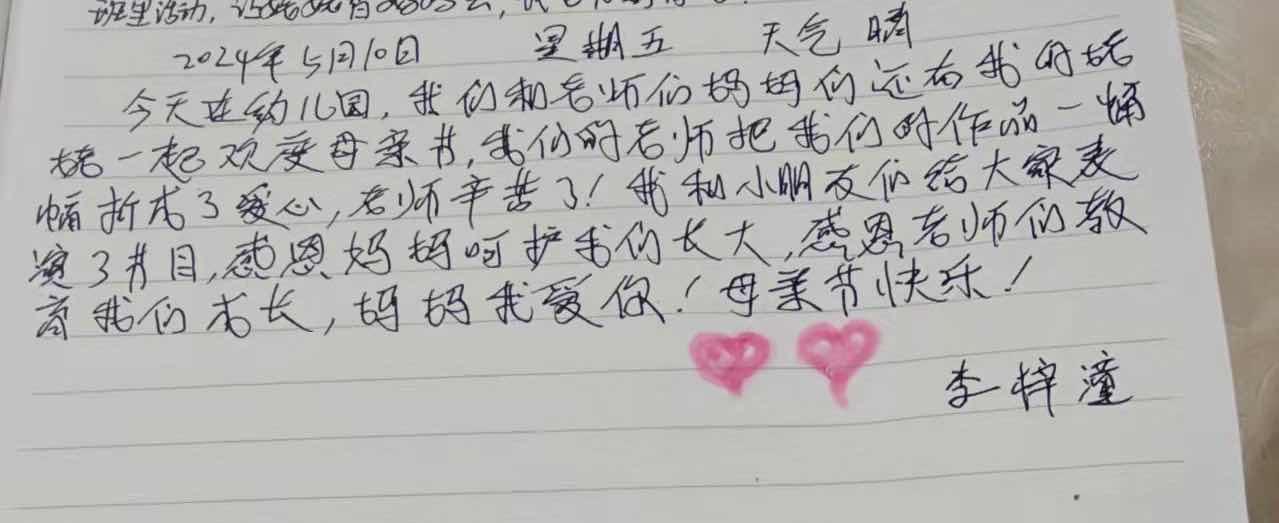 班里活动,
2024年5月10日 星期五 天气 晴
今天在幼儿园,我们和老师们妈妈们还有我的姥
姥一起欢度母亲节,我们的老师把我们的作品一幅
幅折成了爱心,老师辛苦了!我和小朋友们给大家表
演了节目,感恩妈妈呵护我们长大,感恩老师们教
育我们成长,妈妈我爱你!母亲节快乐!
李梓潼